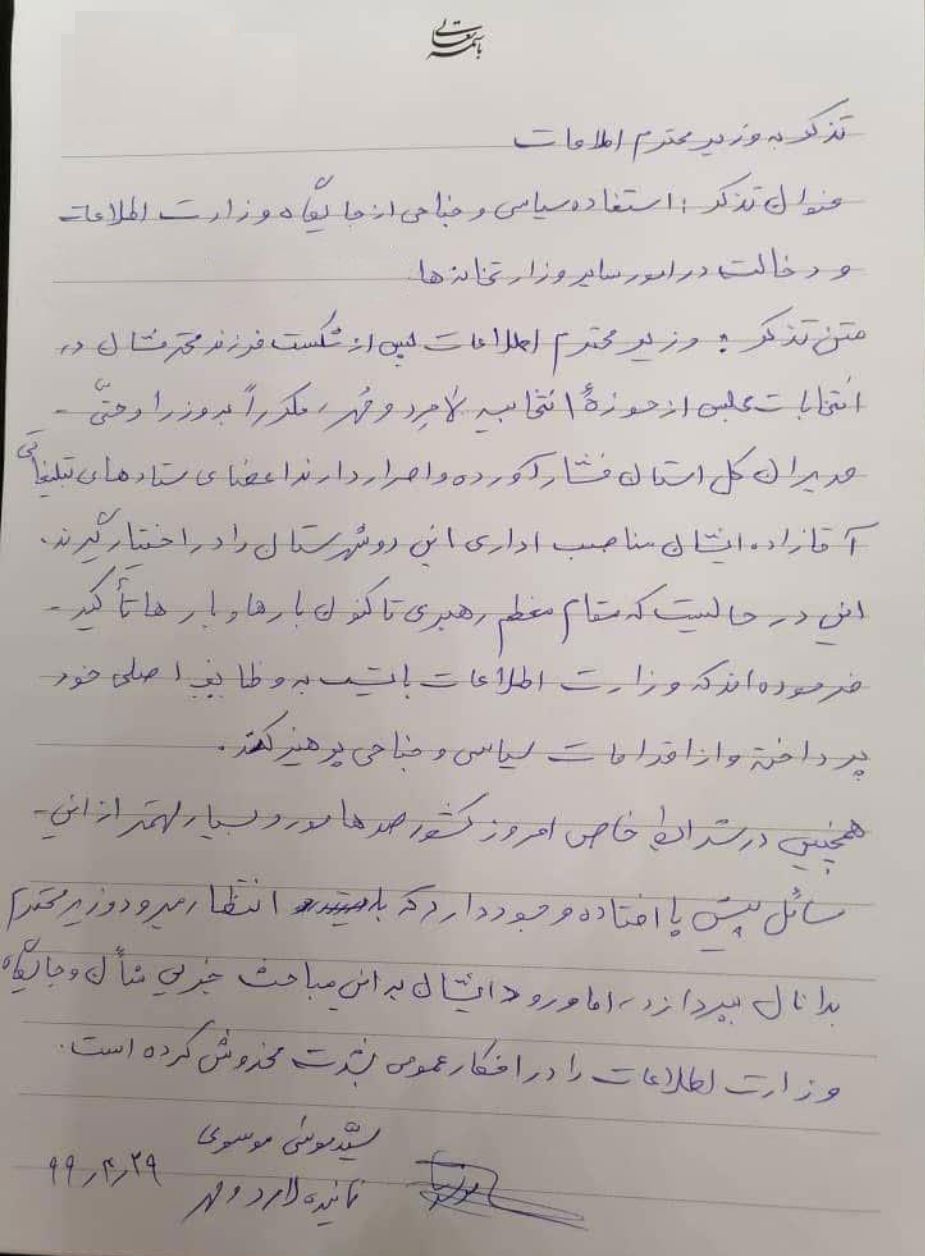 باسمه تعالی
تذکر به وزیر محترم اطلاعات
عنوان تذکر : استفاده سیاسی و جناحی از جایگاه وزارت اطلاعات
و دخالت در امور سایر وزارتخانه ها.
متن تذکر : وزیر محترم اطلاعات پس از شکست فرزند محترمشان در
انتخابات مجلس از حوزهٔ انتخابیه لامرد و مُهر، مکرراً به وزرا و حتّی
مدیران کل استان فشار آورده و اصرار دارند اعضای ستادهای تبلیغاتی
آقازاده ایشان مناصب اداری این دو شهرستان را در اختیار گیرند.
این در حالیست که مقام معظم رهبری تاکنون بارها و بارها تأکید
فرموده اند که وزارت اطلاعات بایست به وظایف اصلی خود
پرداخته و از اقدامات سیاسی و جناحی پرهیز کند.
همچنین در شرایط خاص امروز کشور صدها مورد بسیار مهمتر از این
مسائل پیش پا افتاده وجود دارد که انتظار میرود وزیر محترم
بدانان بپردازد، اما ورود ایشان به این مباحث جزیی شأن و جایگاه
وزارت اطلاعات را در افکار عمومی بشدت مخدوش کرده است.
سیّد موسی موسوی
نماینده لامرد و مهر
۹۹،۴،۲۹